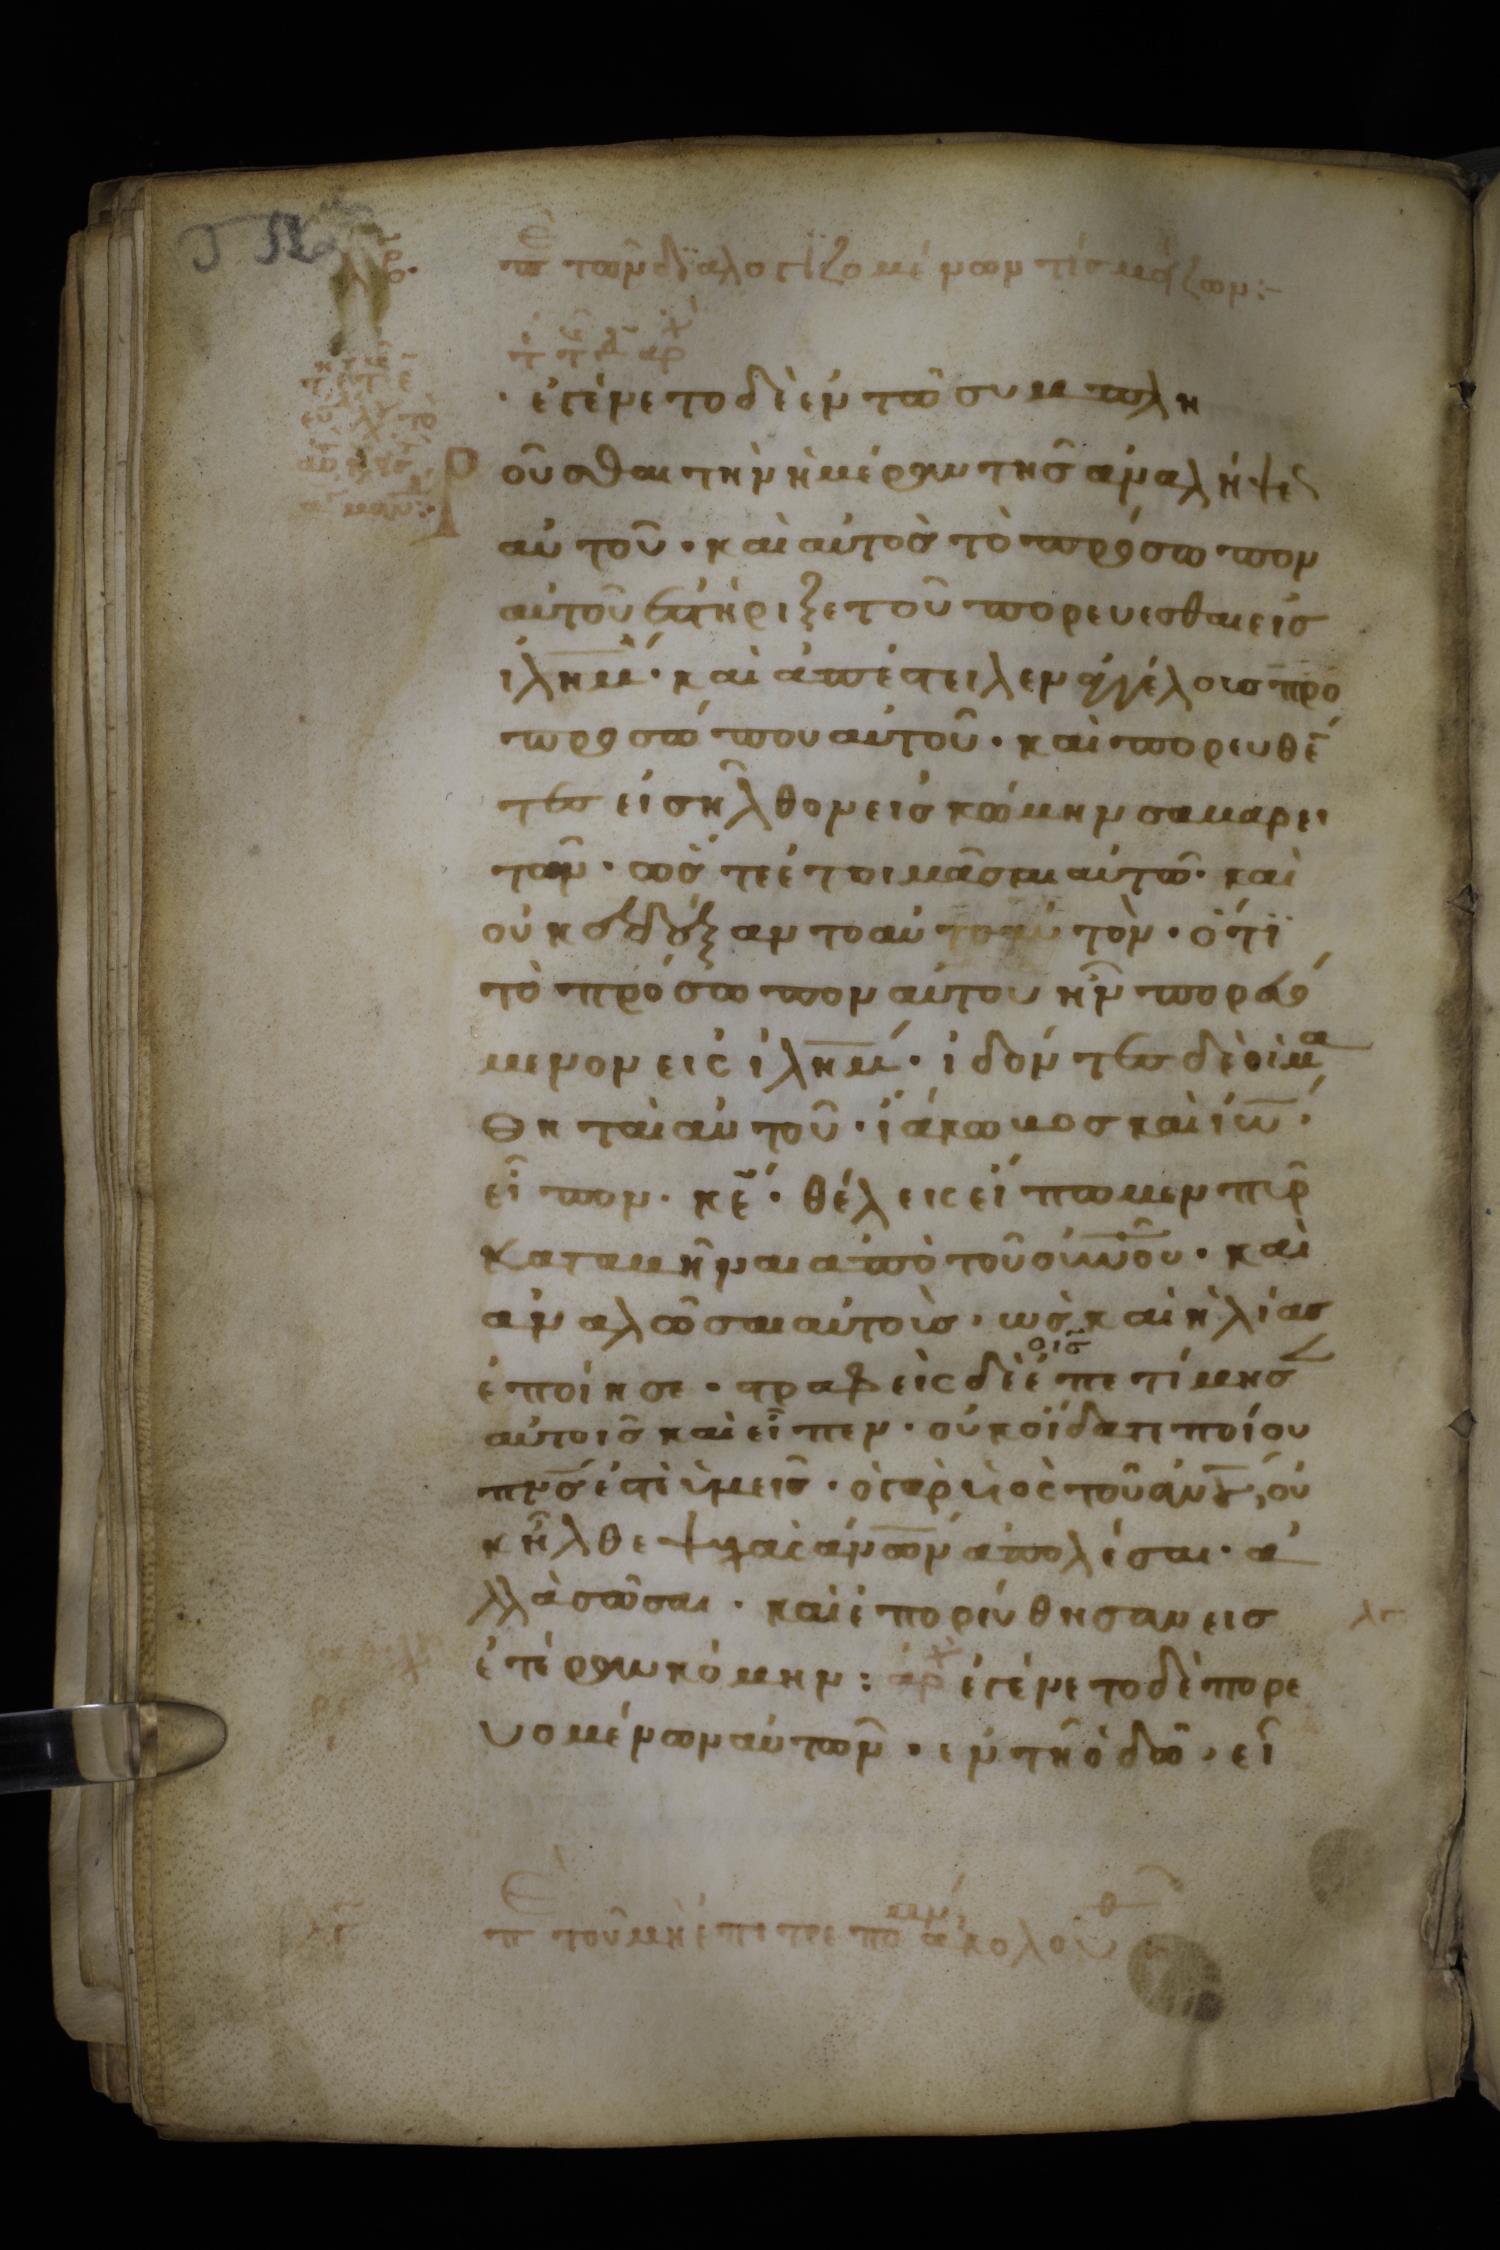 π ̔ε τῶν διαλογϊζομένων τίς μείζων:-
τ τῶ αρχ
· ἐγένετο δὲ ἐν τῶ συμπλη
ροῦσθαι τὴν ἡμέραν τῆς ἀναλήψε
αὐτοῦ · καὶ αὐτὸς τὸ πρόσωπον
αὐτοῦ ἐστήριξε τοῦ πορευεσθαι εἰς
ἰλῆμ · καὶ ἀπέστειλεν ἀγγέλους πρὸ
προσώπου αὐτοῦ · καὶ πορευθέ
τες εἰσῆλθον εἰς κώμην σαμαρει
τῶν · ὥστε ἑτοιμᾶσαι αὐτῶ · καὶ
οὐκ ἐδέξαντο αὐτὸν · ὅτϊ
τὸ πρόσωπον αὐτου ἦν πορευό
μενον εἰς ἰλῆμ · ἰδόντες δὲ οἱ μα
θηταὶ αὐτοῦ · ϊάκωμος καὶ ἰω ·
εἶπον · κε · θέλεις εἴπωμεν πῦρ
καταμῆναι ἀπὸ τοῦ οὐνοῦ · καὶ
ἀναλῶσαι αὐτοὺς · ὡς καὶ ἡλίας
ἐποίησε · στραφεὶς δὲ ἐπετίμησ
αὐτοῖς καὶ εἶπεν · οὐκ οἴδατε ποίου
πνς ἐστὲ ὑμεῖς · ὁ γὰρ υἱὸς τοῦ ἀνου, οὐ
κ ἦλθε ψυχὰς ἀνων ἀπολέσαι · ἀ
λλὰ σῶσαι · καὶ ἐπορεύθησαν εις
ἑτέραν κόμην : αρχ ἐγένετο δὲ πορε
υομένων αὐτῶν · ἐν τῆ ὁδῶ · εἶ
π ̔ε τοῦ μὴ ἐπιτρεπομεν ἀκολουθ